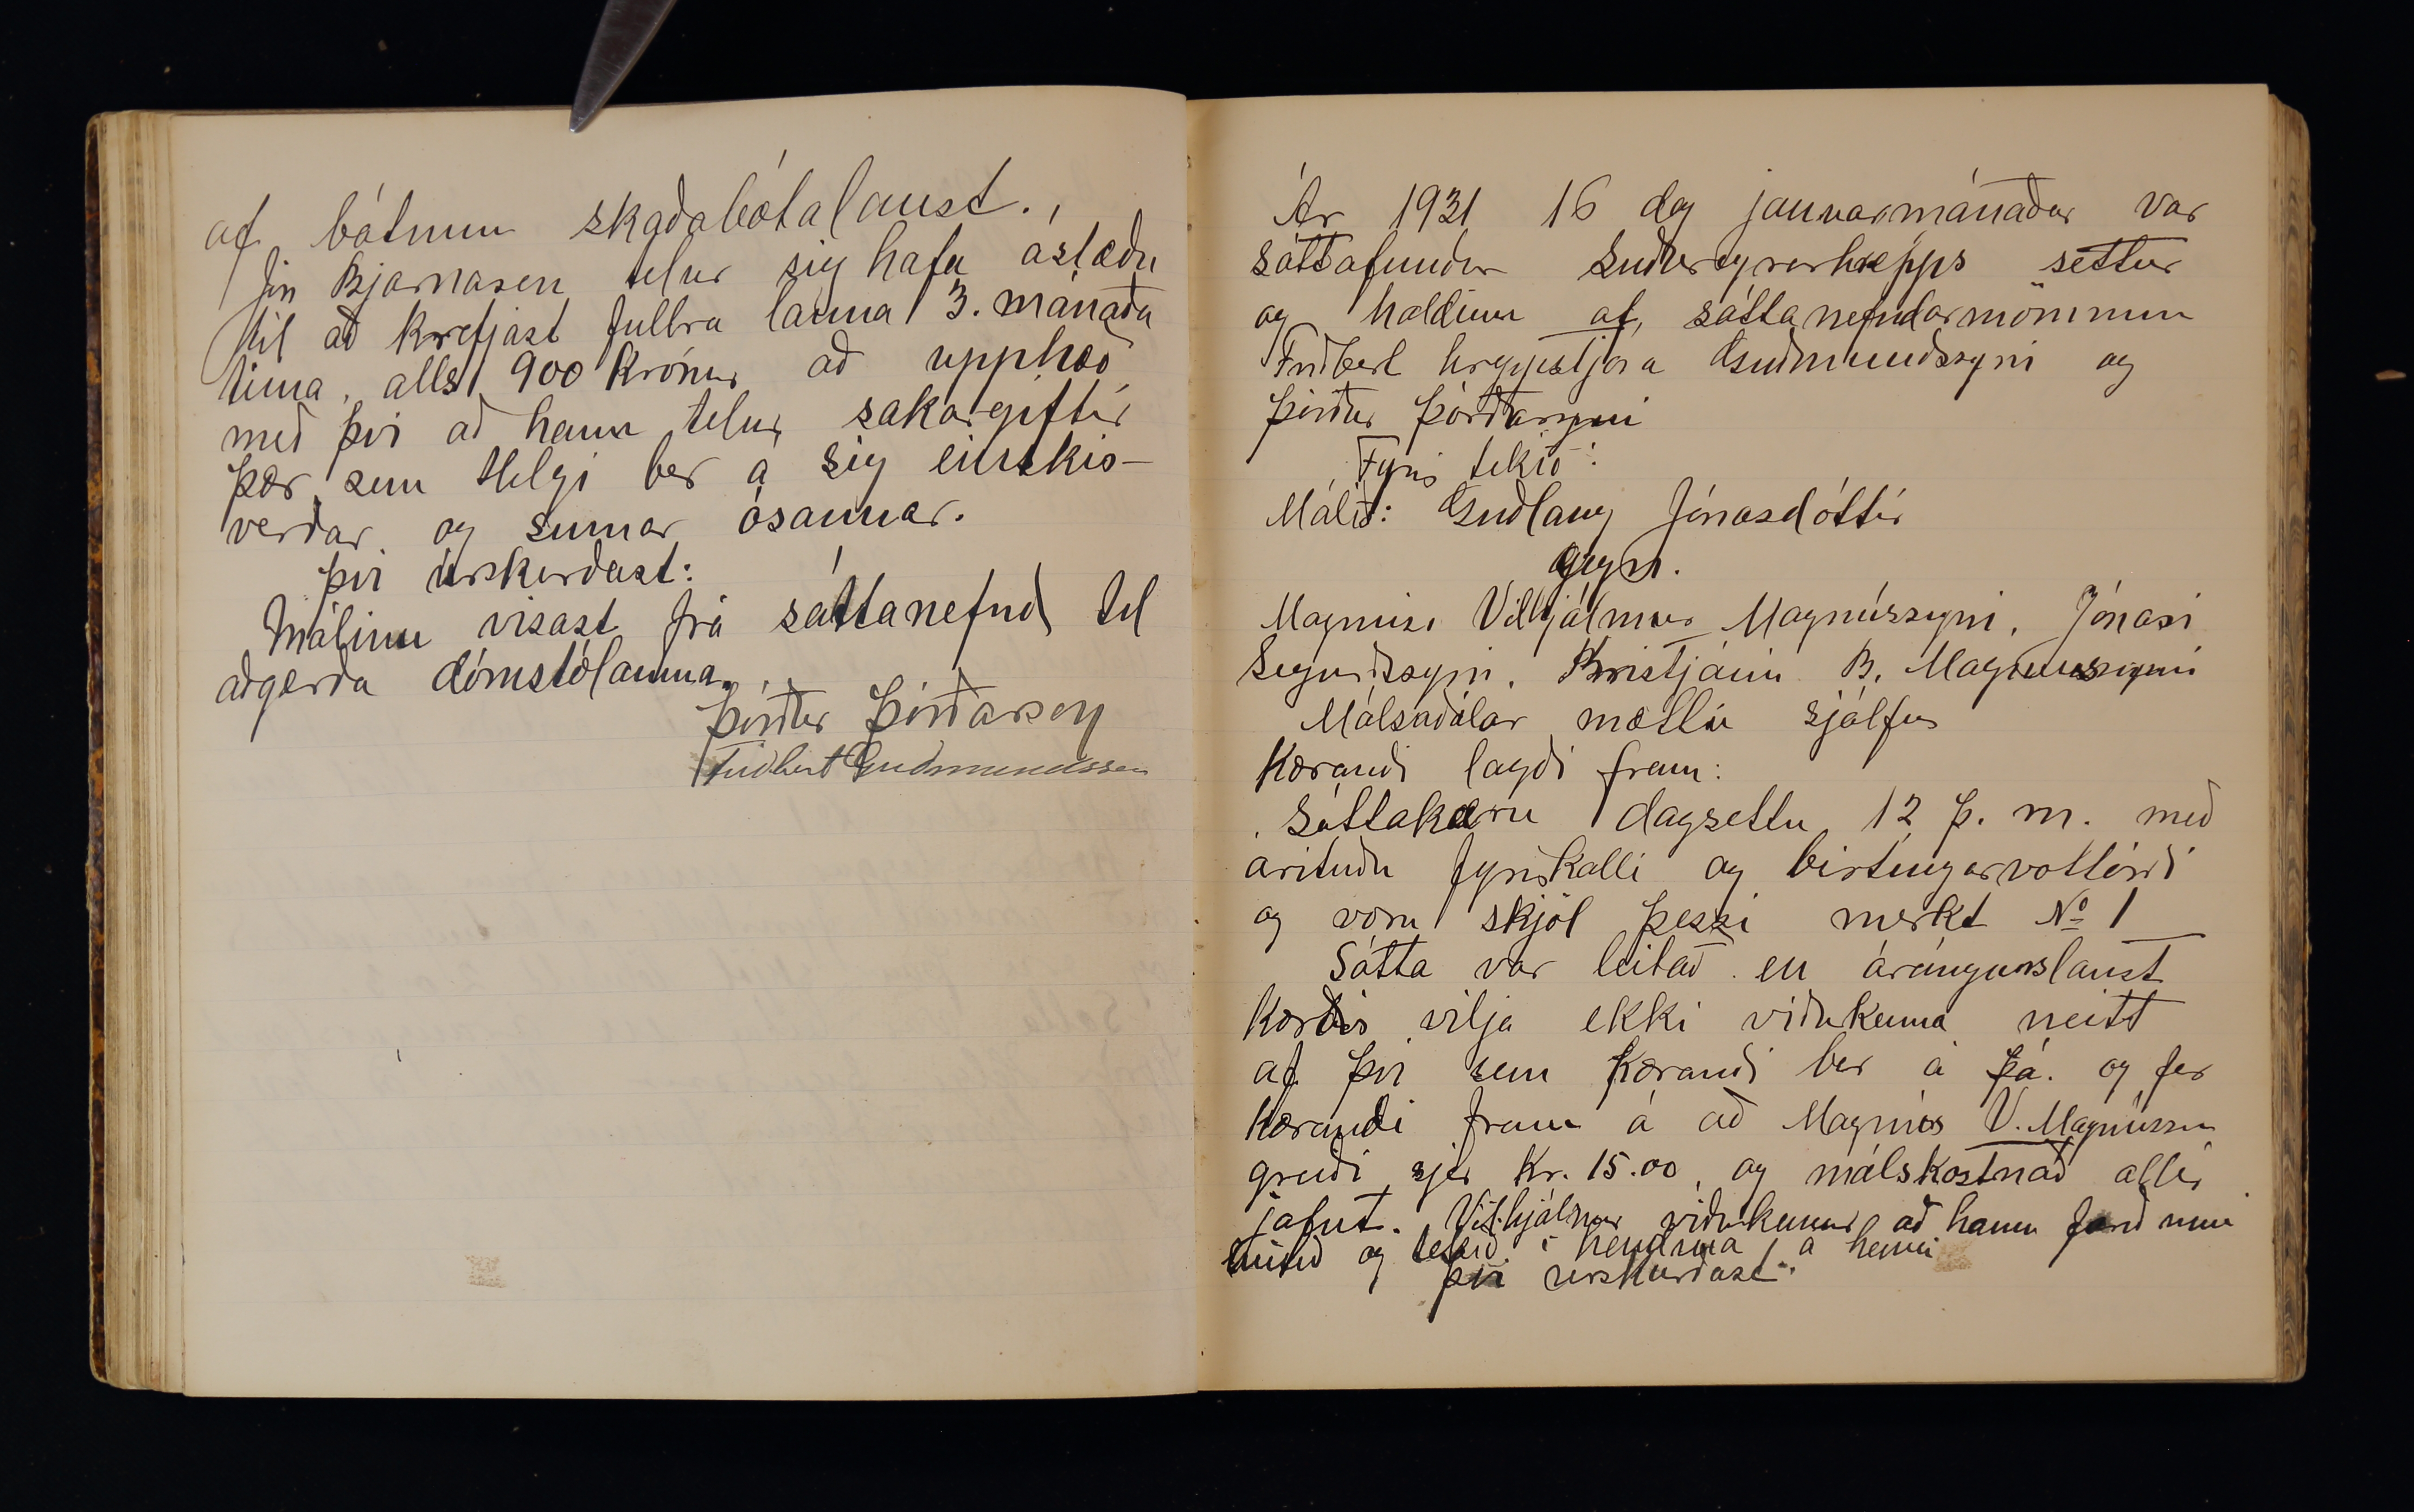 af bátnum skaðabótalaust.
Jón Bjarnason telur sig hafa ástæðu
til að krefjast fullra launa 3. mánaða
tíma, alls 900 krónur að upphæð
með því að hann telur sakargiftir
þær sem Helgi ber á sig einskis-
verðar og sumar ósannar.
Því úrskurðast:
Málinu vísast frá sáttanefnd til
aðgerða dómstólanna.
Þórður Þórðarson
Friðbert Guðmundsson
Ár 1931 16 dag janúarmánaðar var
sáttafundur Suðureyrarhrepps settur
og haldinn af, sáttanefndarmönnum
Friðbert hreppstjóra Guðmundssyni og
Þórður Þórðarsyni
Fyrir tekið:
Málið: Guðlaug Jónasdóttir
gegn.
Magnúsi Vilhjálmur Magnússyni, Jónasi
Sigurðssyni, Kristjáni B. Magnússyni
Málsaðilar mættu sjálfir
Kærandi lagði fram:
Sáttakæru dagsettu 12 þ. m. með
árituðu fyrirkalli og birtingarvottorði
og voru skjöl þessi merkt No 1
Sátta var leitað en árángurslaust
Kærðir vilja ekki viðurkenna neitt
af því sem Kærandi ber á þá. og fer
Kærandi fram á að Magnús V. Magnússon
greiði sjer Kr. 15.00 og málskostnað allir
jafnt. Vilhjálmur viðurkennir að hann
og tekið í hendina á henni
því úrskurðast: